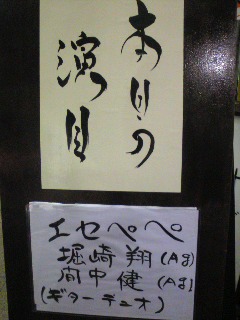 本日の
演目
エセペペ
堀崎翔(Ag)
向中健(Ag)
(ギターデュオ)